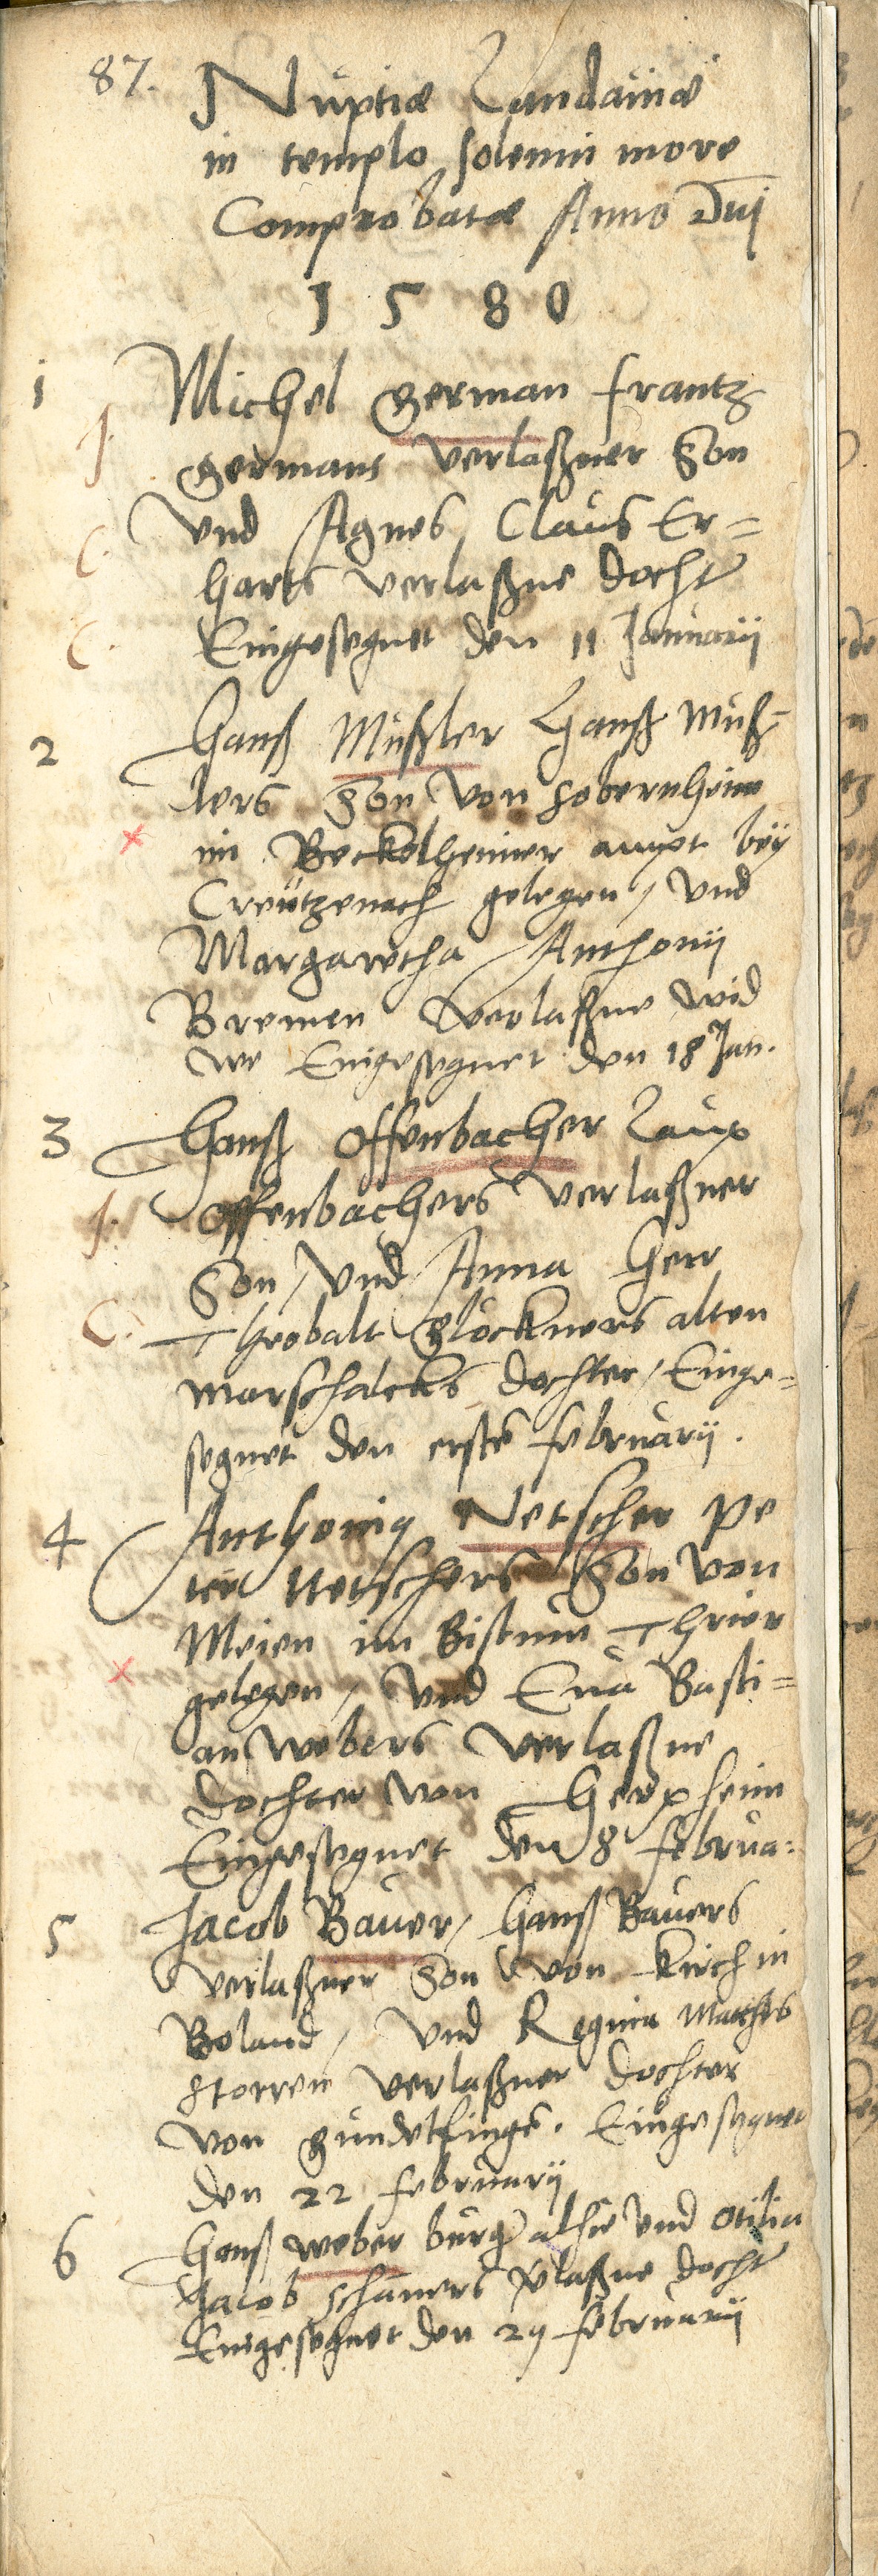 87.
Nuptiæ Landauinæ
in templo solenni more
Comprobatæ Anno Dnj
1580
1 Michel German Frantz
J. Germans verlaßner Son
C. vnd Agnes Claus Er=
harts verlaßne docht
C. Eingesegnet den 11 Januarij
2 Hanß Mußler Hanß Muß=
lers Son von Sobernheim
x im Beckelheimer ampt bey
Creutzenach gelegen / vnd
Margaretha Anthonij
Bremen verlaßne wid
we Eingesegnet den 18 Jan.
3 Hanß Offenbacher Laux
J. Offenbachers verlaßner
Son / vnd Anna Herr
C. Theobalt Glöckners alten
Marschalcks dochter / Einge=
segnet den erste februarij.
4 Anthonig Netscher Pe
ter Netschers Son von
Meien im Bistum Thrier
x gelegen / vnd Eua Basti=
an Webers verlaßne
dochter von Herxheim
Eingesegnet den 8 februa:
5 Jacob Bauer / Hanß Bauers
verlaßner Son von Kirchin
Boland / vnd Regina Matths
Storren verlaßner dochter
von Gundelfinge. Eingesegnet
den 22 februarij
6 Hanß Weber burg alhie vnd Otilia
Jacob Schauers vlaßne docht
Eingesegnet den 29 februarij